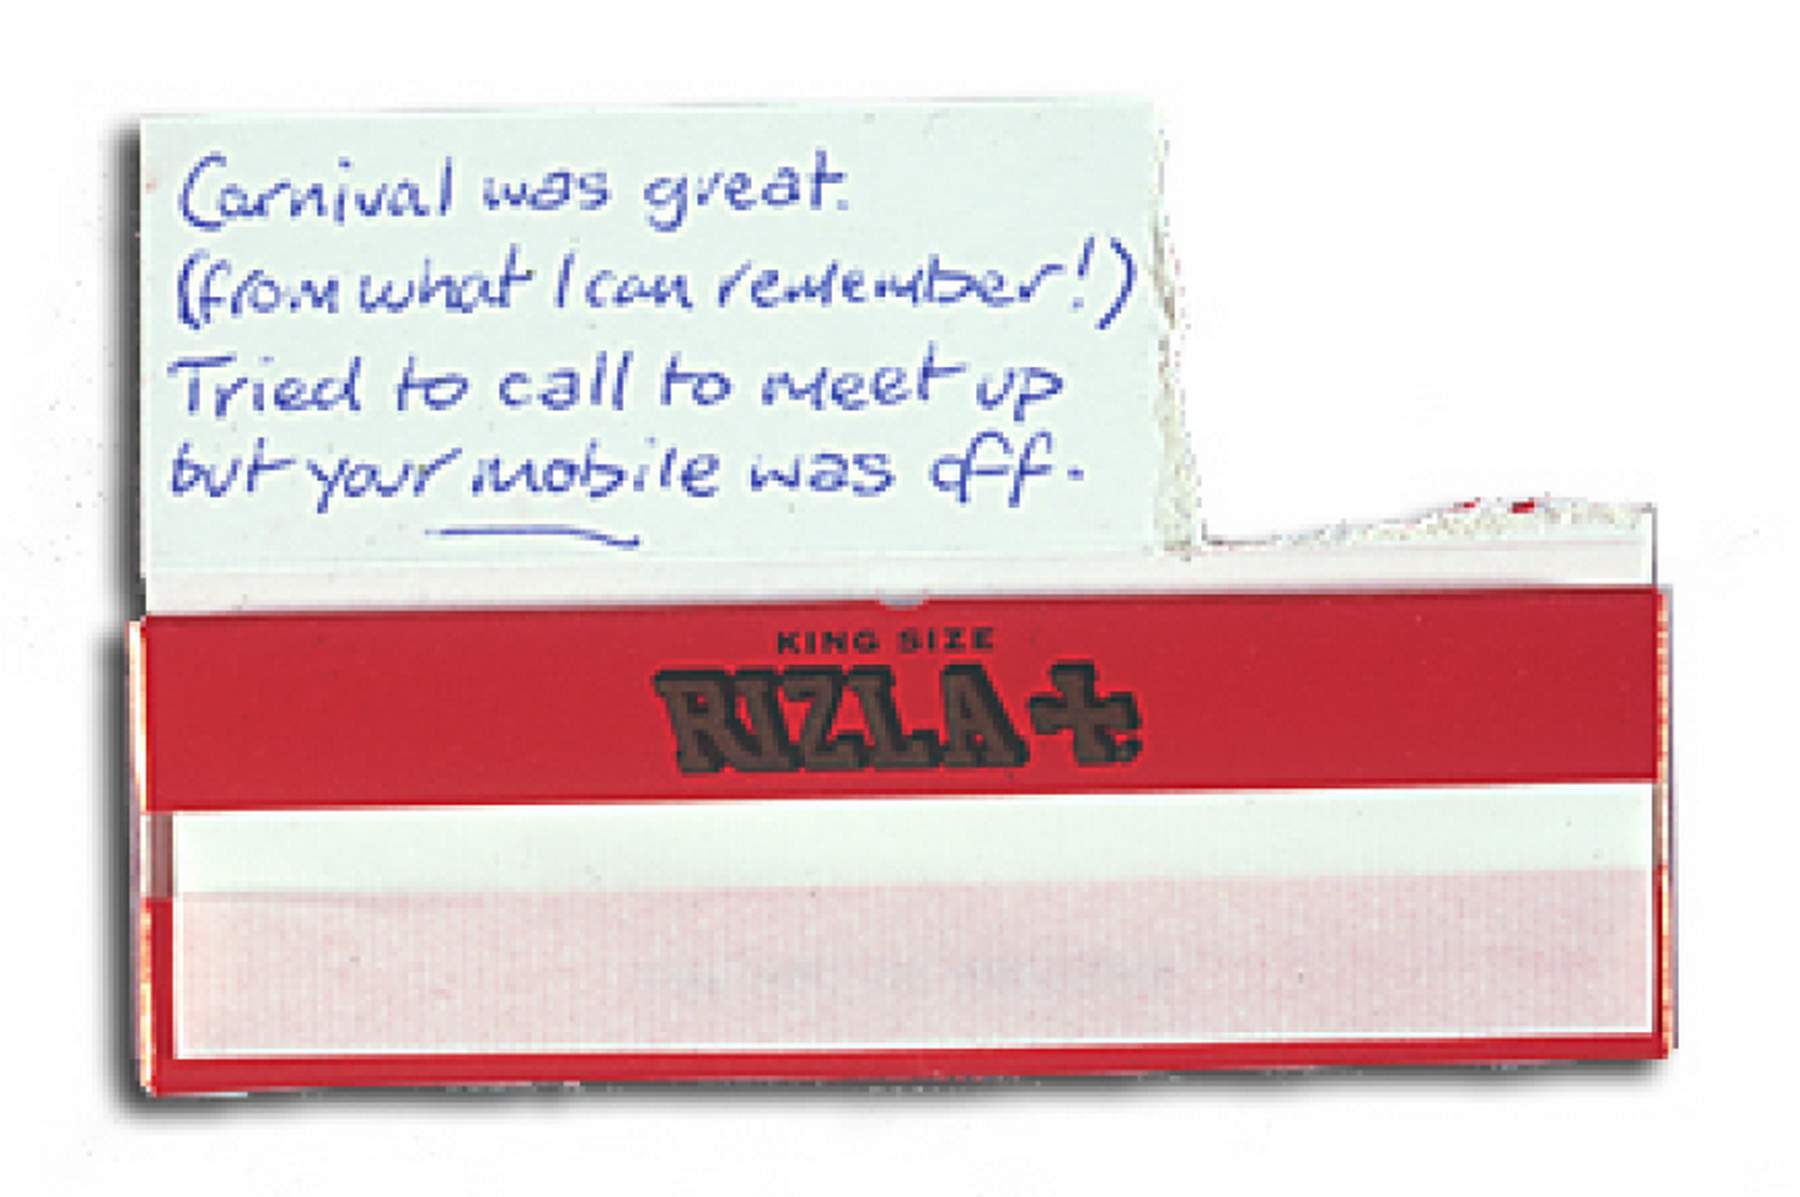 Carnival was great.
(from what I can remember!)
Tried to call to meet up
but your mobile was off.
KING SIZE
RIZLA+.